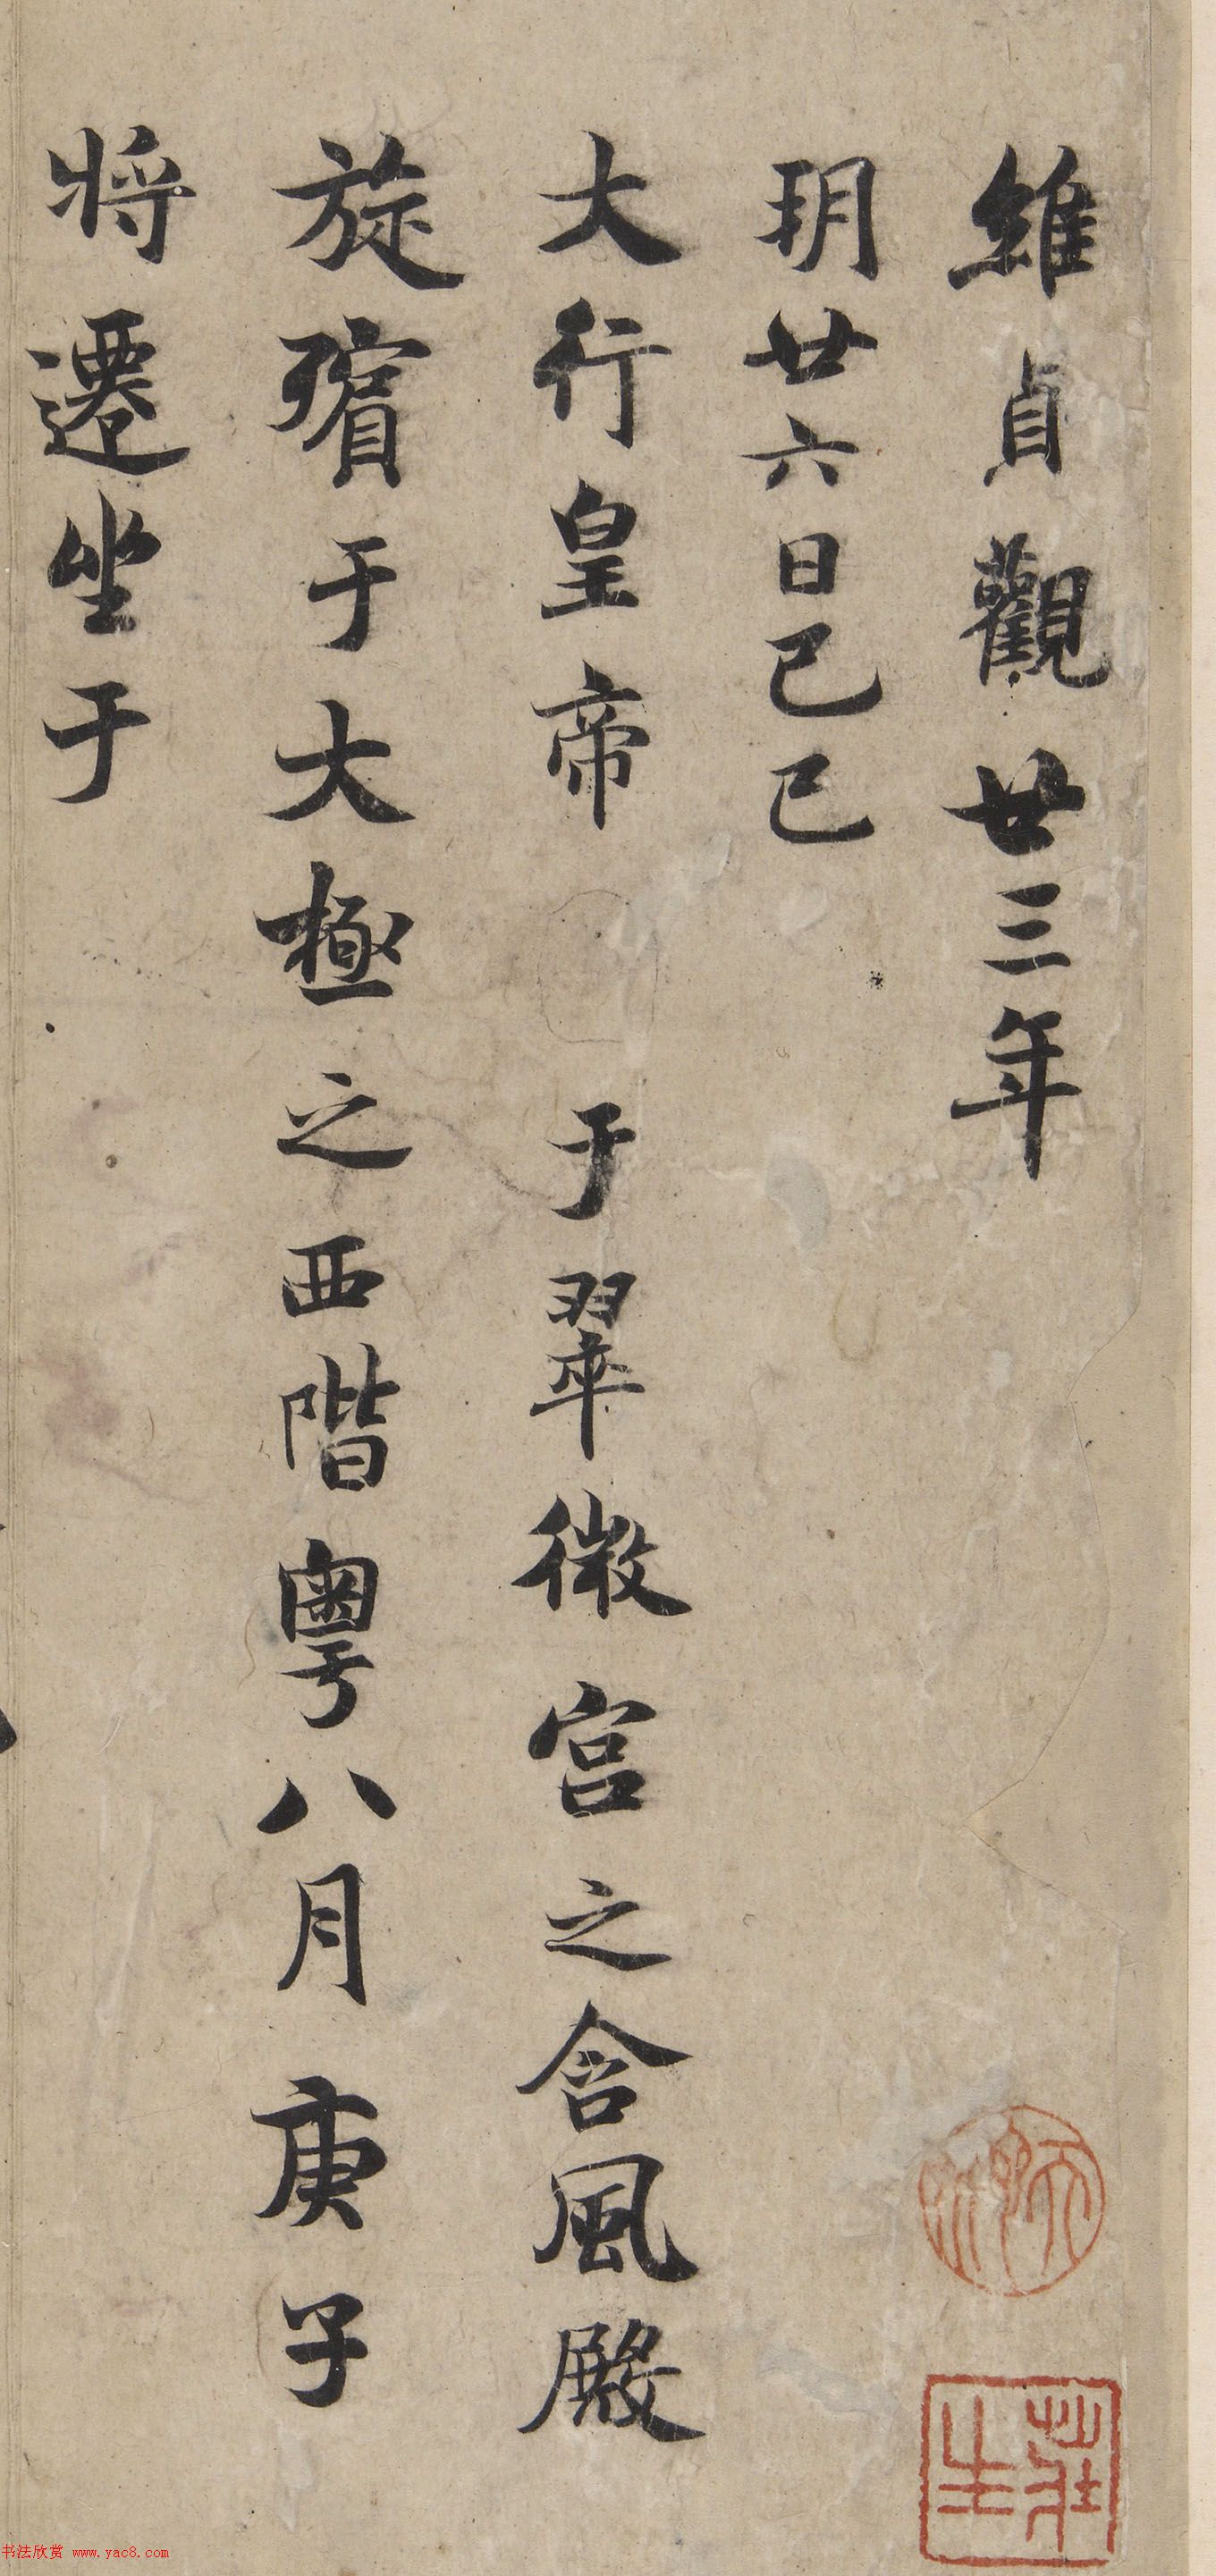 維貞觀廿三年
玥廿六日己巳
大行皇帝 于翠微宮之含風殿
旋殯于大極之西階粵八月庚子
将遷坐于
書法欣賞 www.yac8.com